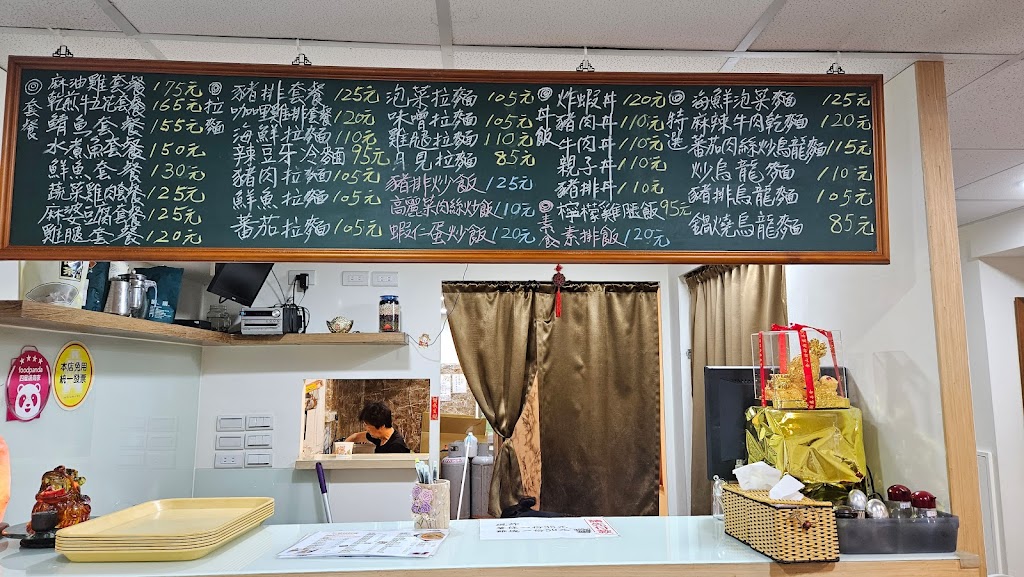 ◎套餐
麻油雞套餐 175元
乾煎牛五花套餐 165元
鯖魚套餐 155元
水煮魚套餐 150元
鮮魚套餐 130元
蔬菜雞肉套餐 125元
麻婆豆腐套餐 125元
雞腿套餐 120元
◎拉麵
豬排套餐 125元
咖哩雞排套餐 120元
海鮮拉麵 110元
辣豆芽冷麵 95元
豬肉拉麵 105元
鮮魚拉麵 105元
蕃茄拉麵 105元
泡菜拉麵 105元
味噌拉麵 105元
雞腿拉麵 110元
月見拉麵 85元
豬排炒飯 125元
高麗菜肉絲炒飯 110元
蝦仁蛋炒飯 120元
◎丼飯
炸蝦丼 120元
豬肉丼 110元
牛肉丼 110元
親子丼 110元
豬排丼 110元
檸檬雞腿飯 95元
◎素食
素排飯 120元
◎特選
海鮮泡菜麵 125元
麻辣牛肉乾麵 120元
蕃茄肉絲炒烏龍麵 115元
炒烏龍麵 110元
豬排烏龍麵 105元
鍋燒烏龍麵 85元
foodpanda
本店免用
統一發票